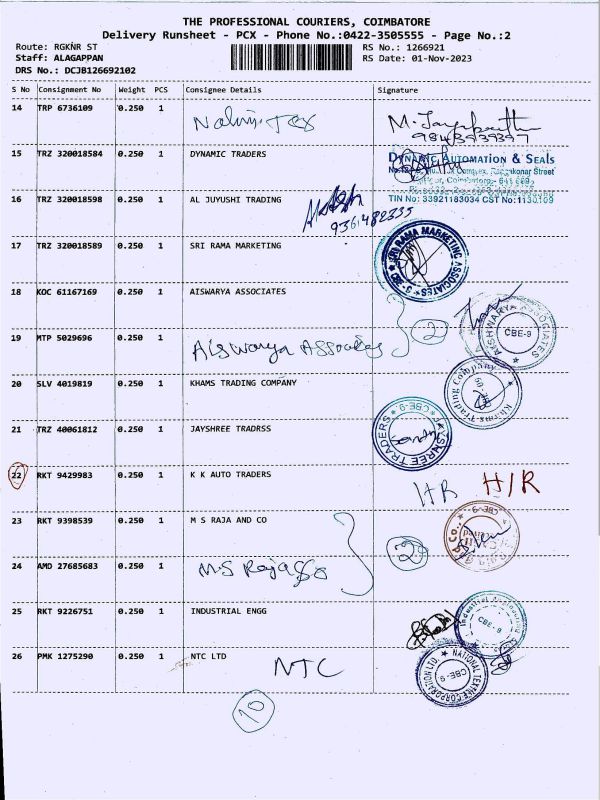 THE PROFESSIONAL COURIERS, COIMBATORE
Delivery Runsheet - PCX - Phone No.:0422-3505555 - Page No.:2
Route: RGKNR ST
RS No.: 1266921
Staff: ALAGAPPAN
RS Date: 01-Nov-2023
DRS No.: DCJB126692102
S No Consignment No Weight PCS Consignee Details Signature
14 TRP 6736109 0.250 1
15 TRZ 320018584 0.250 1 DYNAMIC TRADERS
DYNAMIC AUTOMATION & SEALS
TIN No: 33921183034 CST No:1130109
16 TRZ 320018598 0.250 1 AL JUYUSHI TRADING
9361482335
17 TRZ 320018589 0.250 1 SRI RAMA MARKETING
SRI RAMA MARKETING ASSOCIATES
18 KOC 61167169 0.250 1 AISWARYA ASSOCIATES
2
AISHWARYA ASSOCIATES
CBE-9
19 MTP 5029696 0.250 1 Aiswarya Associates
20 SLV 4019819 0.250 1 KHAMS TRADING COMPANY
Khams Trading Company
21 TRZ 40061812 0.250 1 JAYSHREE TRADRSS
JAYSHREE TRADERS CBE-9
22 RKT 9429983 0.250 1 K K AUTO TRADERS
HR H/R
23 RKT 9398539 0.250 1 M S RAJA AND CO
CBE-9
2
24 AMD 27685683 0.250 1 M.S Raja
25 RKT 9226751 0.250 1 INDUSTRIAL ENGG
Industrial
CBE-9
26 PMK 1275290 0.250 1 NTC LTD NTC
NATIONAL TEXTILE CORPORATION LTD.
CBE-9
10